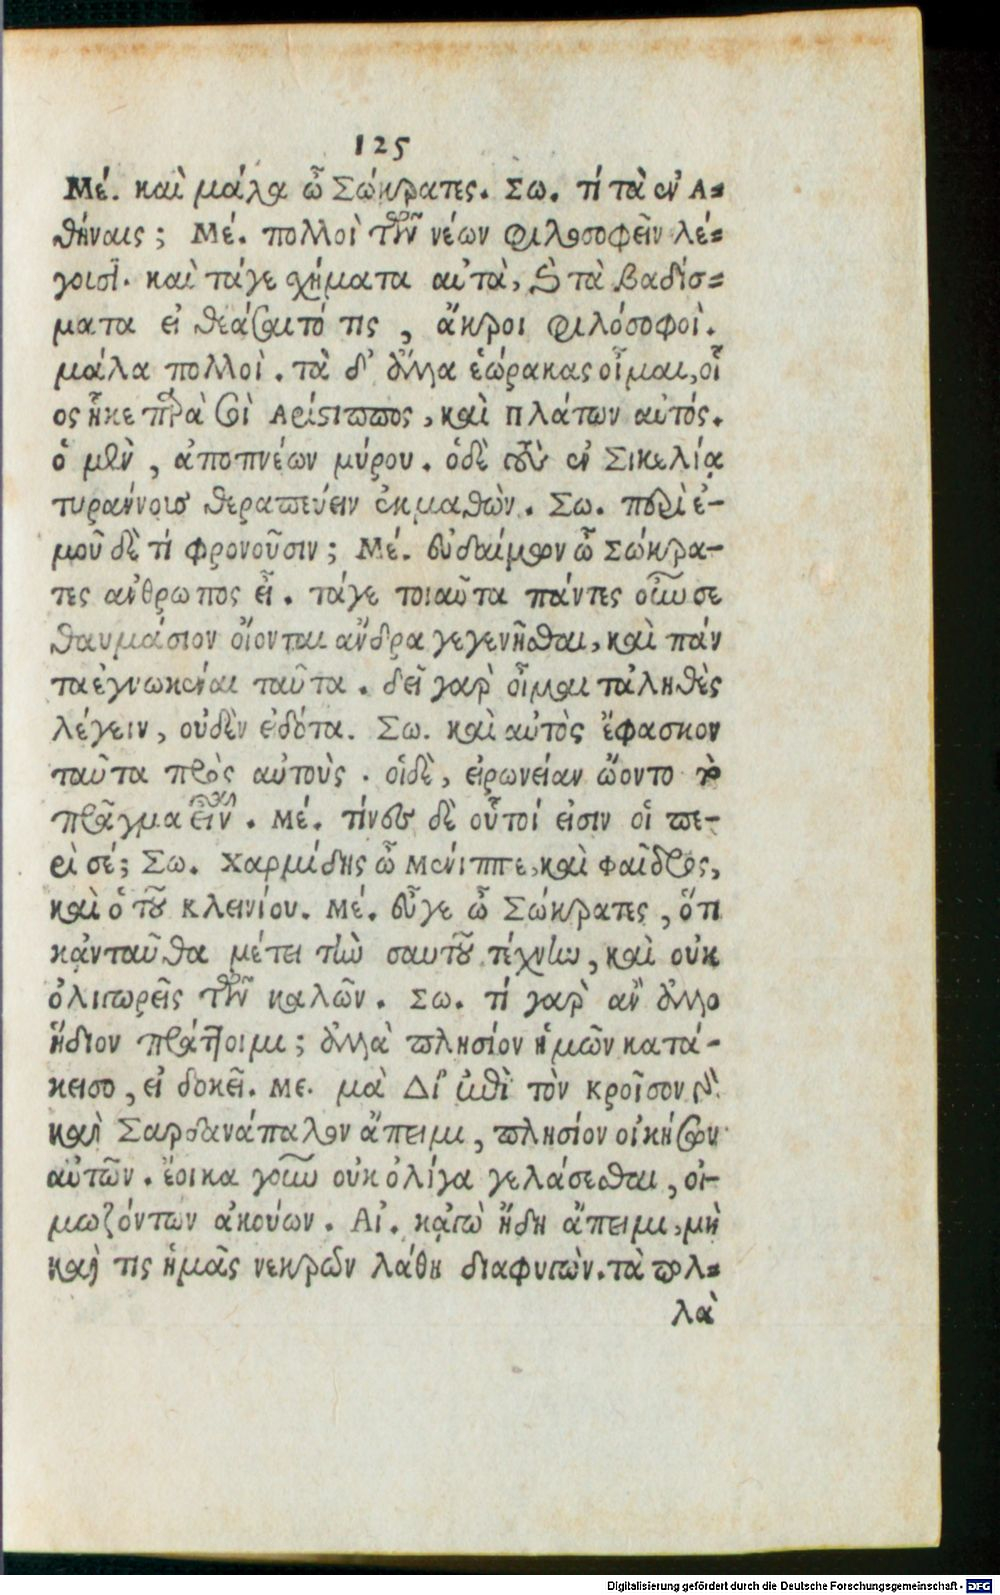 125
Μέ. καὶ μάλα ὦ Σώκρατες. Σω. τί τὰ ἐν Α-
θήναις; Μέ. πολλοὶ τῶν νέων φιλοσοφεῖν λέ-
γουσι. καὶ τάγε χήματα αὐτὰ, καὶ τὰ βαδίσ-
ματα εἰ θεάσαιτό τις, ἄκροι φιλόσοφοι.
μάλα πολλοὶ. τὰ δ' ἄλλα ἑώρακας οἶμαι, οἷ
ος ἧκε παρὰ σοὶ Αρίστιππος, καὶ Πλάτων αὐτός.
ὁ μὲν, ἀποπνέων μύρου. ὁδὲ τοὺς ἐν Σικελίᾳ
τυράννους θεραπεύειν ἐκμαθών. Σω. περὶ ἐ-
μοῦ δὲ τί φρονοῦσιν; Μέ. εὐδαίμων ὦ Σώκρα-
τες ἄνθρωπος εἶ. τάγε τοιαῦτα πάντες οὖν σε
θαυμάσιον οἴονται ἄνδρα γεγενῆσθαι, καὶ πάν
τα ἐγνωκέναι ταῦτα. δεῖ γὰρ οἶμαι τἀληθὲς
λέγειν, οὐδὲν εἰδότα. Σω. καὶ αὐτὸς ἔφασκον
ταῦτα πρὸς αὐτοὺς. οἱδὲ, εἰρωνείαν ᾤοντο τὸ
πρᾶγμα εἶναι. Μέ. τίνες δὲ οὗτοί εἰσιν οἱ πε-
ρὶ σέ; Σω. Χαρμίδης ὦ Μένιππε, καὶ Φαῖδρος,
καὶ ὁ τοῦ Κλεινίου. Μέ. εὖγε ὦ Σώκρατες, ὅτι
κἀνταῦθα μέτει τὴν σαυτοῦ τέχνην, καὶ οὐκ
ὀλιγωρεῖς τῶν καλῶν. Σω. τί γὰρ ἂν ἄλλο
ἥδιον πράττοιμι; ἀλλὰ πλησίον ἡμῶν κατά-
κεισο, εἰ δοκεῖ. Με. μὰ Δί' ἐπὶ τὸν Κροῖσον γὰρ
καὶ Σαρδανάπαλον ἄπειμι, πλησίον οἰκήσων
αὐτῶν. ἔοικα γοῦν οὐκ ὀλίγα γελάσεσθαι, οἰ-
μωζόντων ἀκούων. Αἰ. κἀγὼ ἤδη ἄπειμι, μὴ
καί τις ἡμᾶς νεκρῶν λάθῃ διαφυγών. τὰ πολ-
λὰ
Digitalisierung gefördert durch die Deutsche Forschungsgemeinschaft - DFG